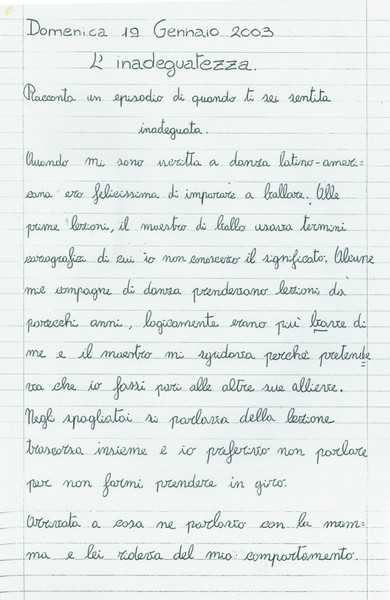 Domenica 19 Gennaio 2003
L' inadeguatezza.
Racconta un episodio di quando ti sei sentita
inadeguata.
Quando mi sono iscritta a danza latino-ameri=
cana ero felicissima di imparare a ballare. Alle
prime lezioni, il maestro di ballo usava termini
coreografici di cui io non conoscevo il significato. Alcune
mie compagne di danza prendevano lezioni da
parecchi anni, logicamente erano più brave di
me e il maestro mi sgridava perché pretende
va che io fossi pari alle altre sue allieve.
Negli spogliatoi si parlava della lezione
trascorsa insieme e io preferivo non parlare
per non farmi prendere in giro.
Arrivata a casa ne parlavo con la mam=
ma e lei rideva del mio comportamento.